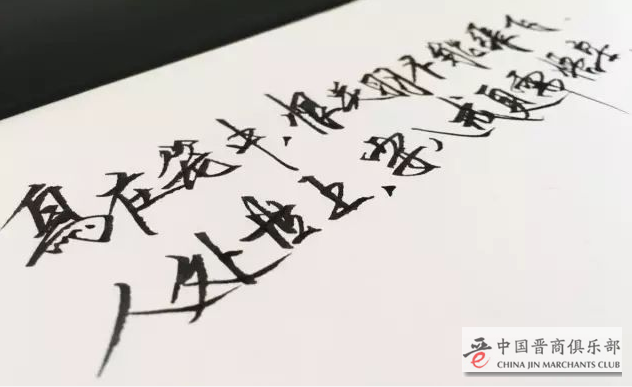 鳥在笼中，恨关羽不能张飞
人处世上，要八戒更需悟空
中国晋商俱乐部
CHINA JIN MERCHANTS CLUB